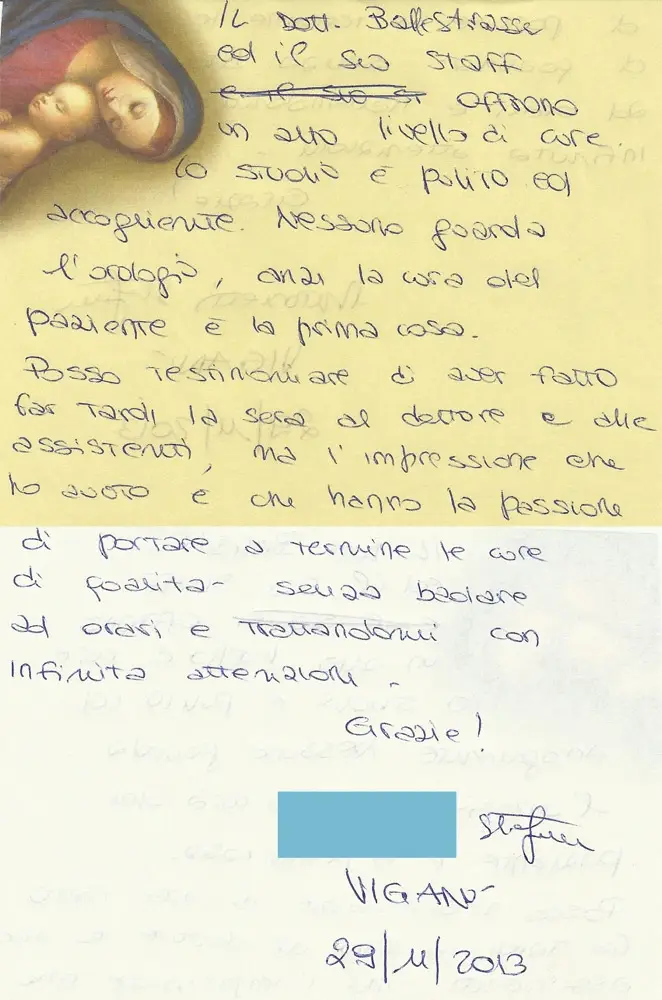 IL DOTT. Ballestrasse
ed il suo staff
e il suo st offrono
un alto livello di cure.
Lo studio è pulito ed
accogliente. Nessuno guarda
l'orologio, anzi la cura del
paziente è la prima cosa.
Posso testimoniare di aver fatto
far tardi la sera al dottore e alle
assistenti, ma l'impressione che
ho avuto è che hanno la passione
di portare a termine le cure
di qualità senza badare
ad orari e trattandomi con
infinita attenzione.
Grazie!
VIGANÒ
29/11/2013